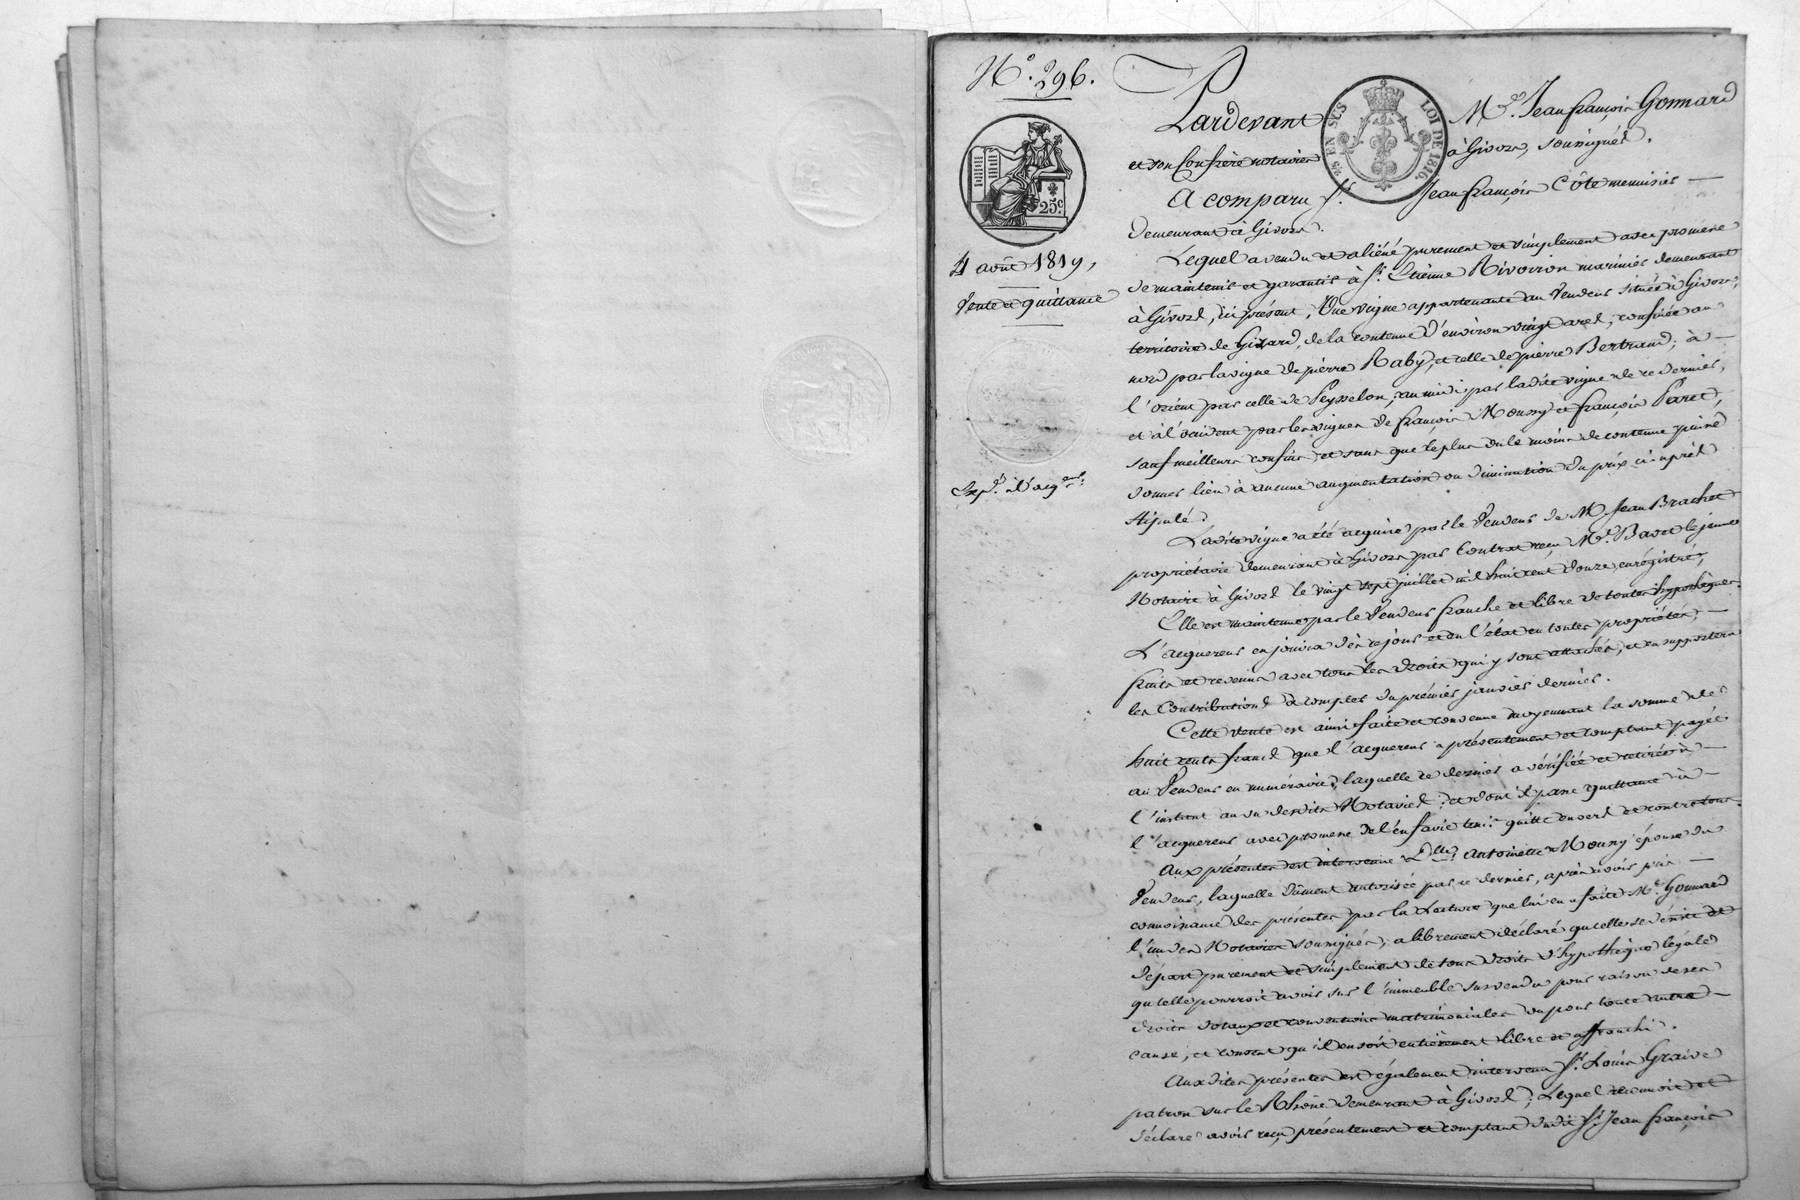 N.° 296.
25.c
4 août 1819,
Vente et quittance
Exp.é à l'acq.eur
¼ EN SUS
LOI DE 1816.
Pardevant M.e Jean françois Gonnard
et son Confrère notaires à Givors, soussignés.
A comparu S.r Jean françois Côte menuisier
demeurant à Givors.
Lequel a vendu et aliéné purement et simplement avec promesse
de maintenir et garantir à S.r Etienne Rivoiron marinier demeurant
à Givors, ici présent, Une vigne appartenante au Vendeur située à Givors,
territoire de Gizard, de la contenue d'environ vingt ares, confinée au
nord par la vigne de pierre Raby, et celle de pierre Bertrand; à
l'orient par celle de Peysselon, au midi par ladite vigne de ce dernier,
et à l'occident par les vignes de françois Moussy et françois Paret,
sauf meilleurs confins et sans que le plus ou le moins de contenue puisse
donner lieu à aucune augmentation ou diminution du prix ci-après
stipulé.
Ladite vigne a été acquise par le Vendeur de M. Jean Brachet
propriétaire demeurant à Givors par Contrat reçu M.e Bavet le jeune
Notaire à Givors le vingt sept juillet mil huit cent douze, enrégistré;
Elle est maintenue par le Vendeur franche et libre de toutes hypothèques.
L'acquereur en jouira dès ce jour et en l'état en toutes propriétés,
fruits et revenus avec tous les droits qui y sont attachés, et en supportera
les Contributions à compter du prémier janvier dernier.
Cette vente est ainsi faite et convenue moyennant la somme de
huit cents francs que l'acquereur a présentement et comptant payée
au Vendeur en numéraire, laquelle ce dernier a vérifiée et retirée à
l'instant au vu desdits Notaires; et dont il passe quittance à
l'acquereur avec promesse de l'en faire tenir quitte envers et contre tous.
Aux présentes est intervenue D.lle Antoinette Mouny épouse du
Vendeur, laquelle dûment autorisée par ce dernier, après avoir pris
connoissance des présentes par la lecture que lui en a faite M.e Gonnard
l'un des Notaires soussignés, a librement déclaré qu'elle se désiste et
départ purement et simplement de tous droits d'hypothèque légale
qu'elle pourroit avoir sur l'immeuble susvendu pour raison de ses
droits dotaux et conventions matrimoniales ou pour toute autre
cause, et consent qu'il en soit entièrement libre et affranchi.
Aux dites présentes est également intervenu S.r Louis Graive
patron sur le Rhône demeurant à Givors; Lequel reconnoit et
déclare avoir reçu présentement et comptant dudit S.r Jean françois